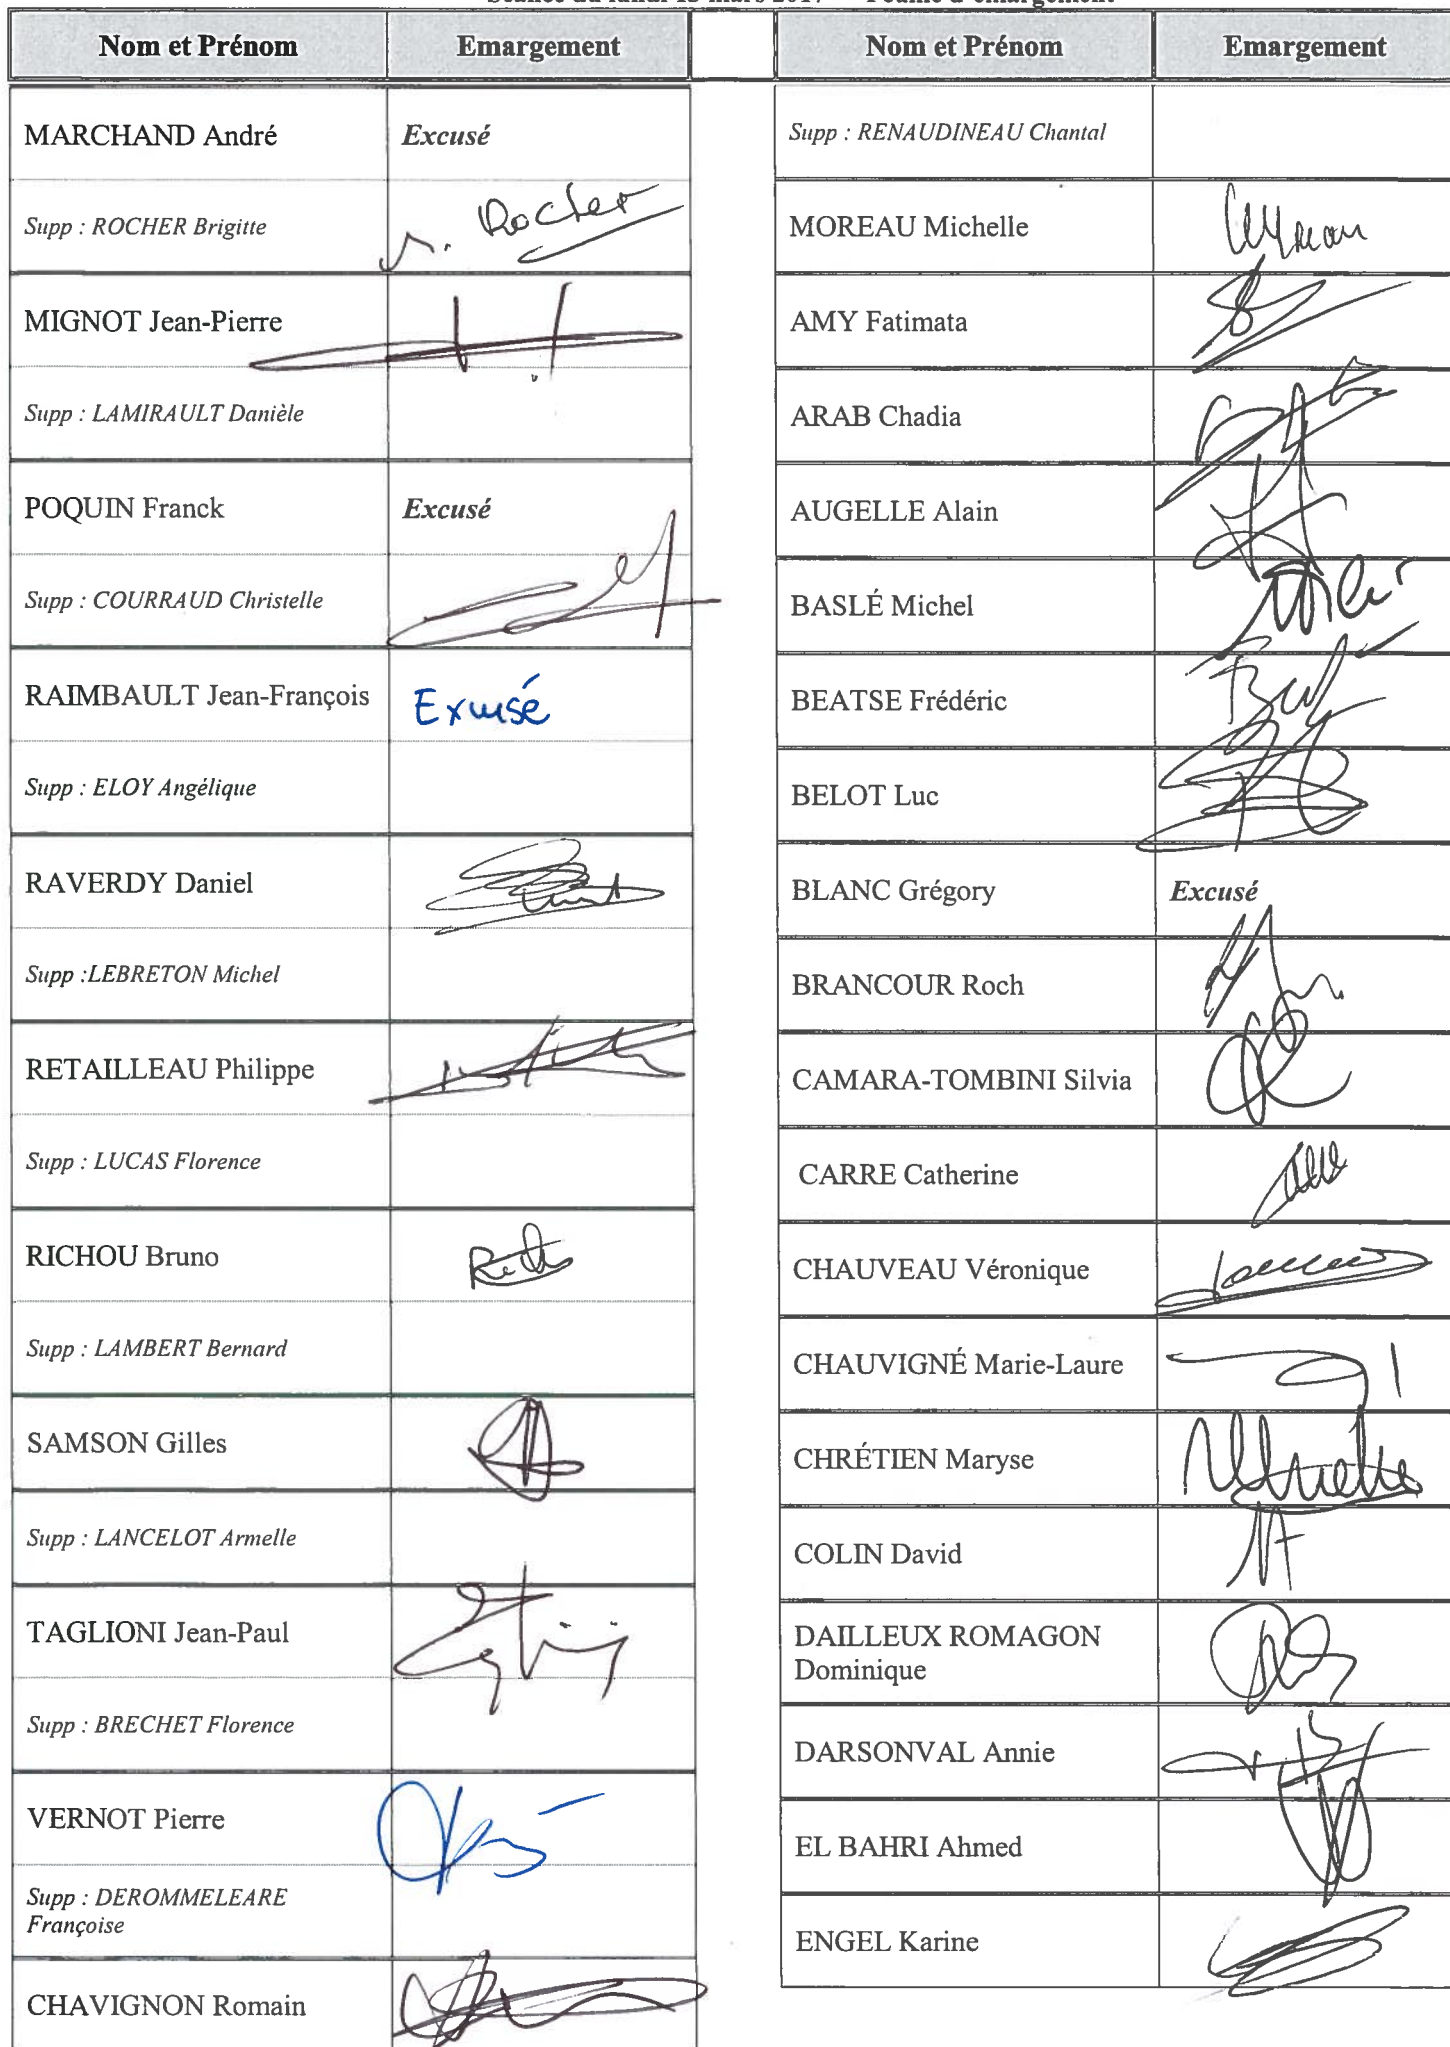 Séance du lundi 13 mars 2017 Feuille d'émargement
Nom et Prénom Emargement
MARCHAND André Excusé
Supp : ROCHER Brigitte Rocher
MIGNOT Jean-Pierre
Supp : LAMIRAULT Danièle
POQUIN Franck Excusé
Supp : COURRAUD Christelle
RAIMBAULT Jean-François Excusé
Supp : ELOY Angélique
RAVERDY Daniel
Supp :LEBRETON Michel
RETAILLEAU Philippe
Supp : LUCAS Florence
RICHOU Bruno
Supp : LAMBERT Bernard
SAMSON Gilles
Supp : LANCELOT Armelle
TAGLIONI Jean-Paul
Supp : BRECHET Florence
VERNOT Pierre
Supp : DEROMMELEARE
Françoise
CHAVIGNON Romain
Nom et Prénom Emargement
Supp : RENAUDINEAU Chantal
MOREAU Michelle
AMY Fatimata
ARAB Chadia
AUGELLE Alain
BASLÉ Michel
BEATSE Frédéric
BELOT Luc
BLANC Grégory Excusé
BRANCOUR Roch
CAMARA-TOMBINI Silvia
CARRE Catherine
CHAUVEAU Véronique
CHAUVIGNÉ Marie-Laure
CHRÉTIEN Maryse
COLIN David
DAILLEUX ROMAGON
Dominique
DARSONVAL Annie
EL BAHRI Ahmed
ENGEL Karine